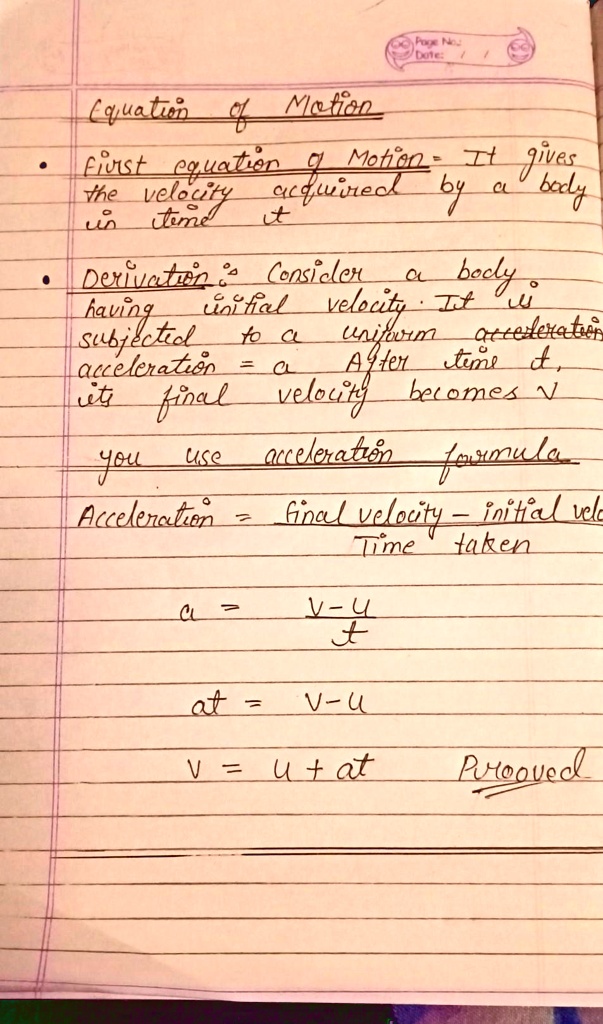 Page No.:
Date: / /
Equation of Motion
• First equation of Motion = It gives
the velocity acquired by a body
in time t
• Derivation :- Consider a body
having initial velocity. It is
subjected to a uniform acceleration
acceleration = a After time t,
its final velocity becomes v
you use acceleration formula
Acceleration = final velocity - initial velo
Time taken
a = v-u
t
at = v-u
v = u + at Prooved